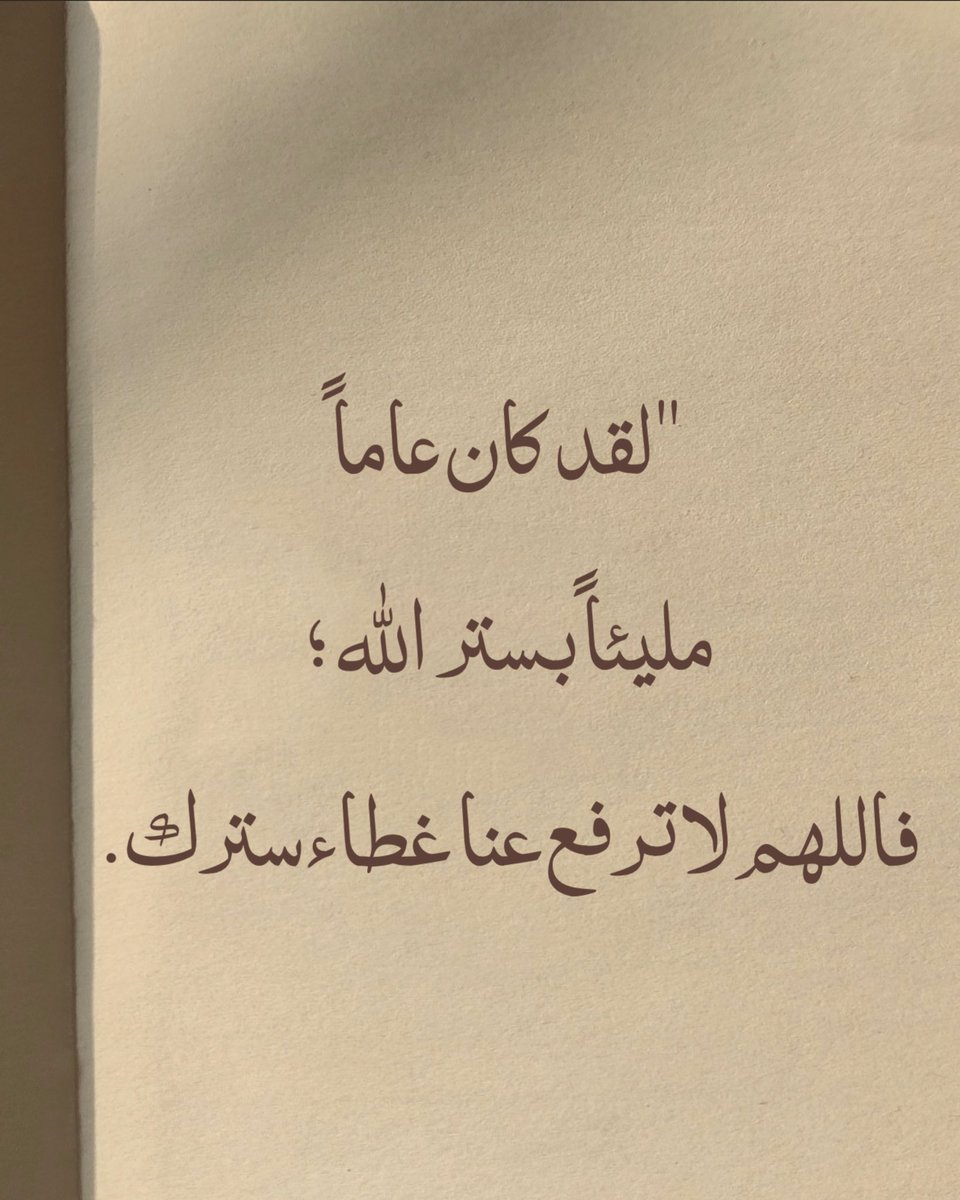 "لقد كان عاماً
مليئاً بستر الله ؛
فاللهم لا ترفع عنا غطاء سترك .